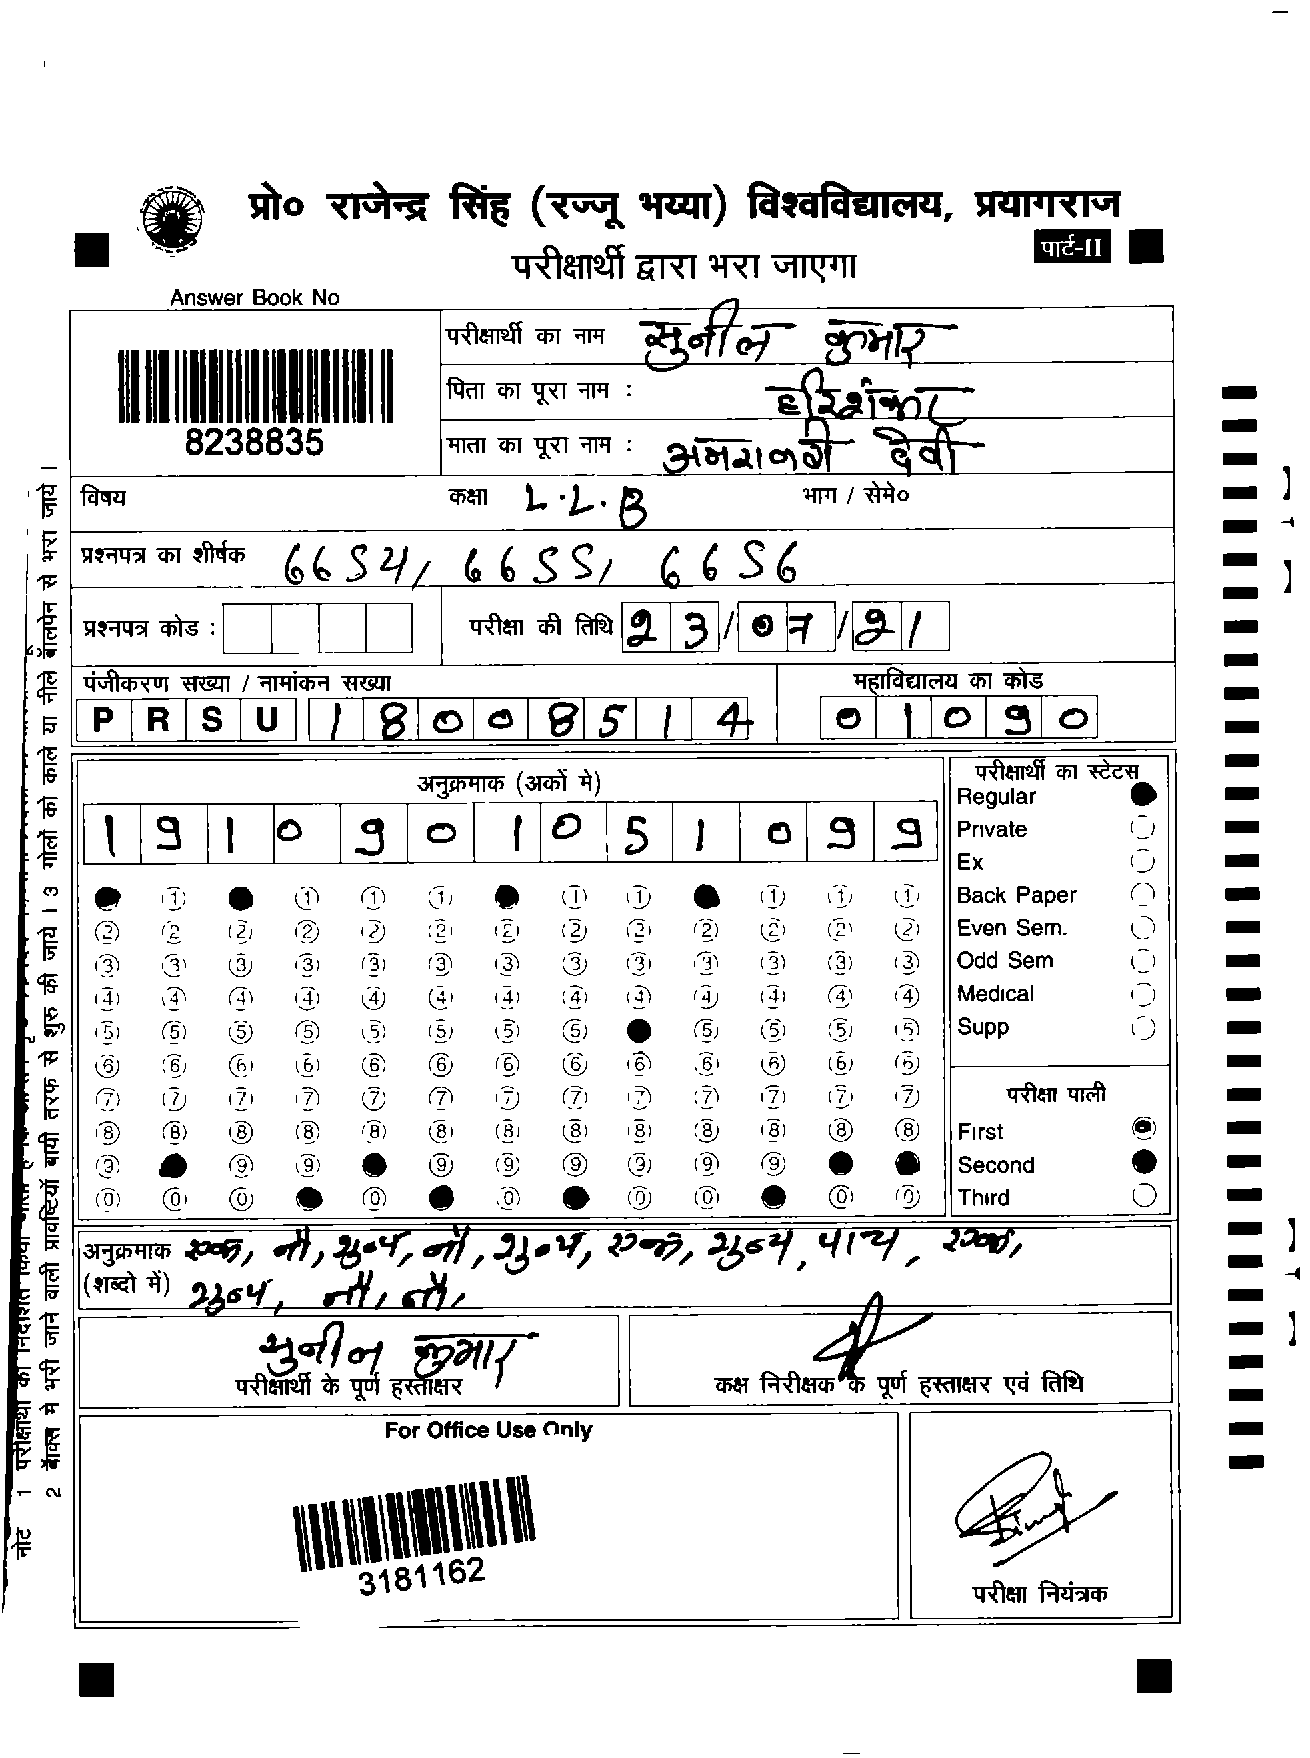 प्रो० राजेन्द्र सिंह (रज्जू भय्या) विश्वविद्यालय, प्रयागराज
पार्ट-II
परीक्षार्थी द्वारा भरा जाएगा
Answer Book No
8238835
परीक्षार्थी का नाम सुनील कुमार
पिता का पूरा नाम : हरिशंकर
माता का पूरा नाम : देवी
विषय कक्षा L.L.B भाग / सेमे०
प्रश्नपत्र का शीर्षक 6654, 6655, 6656
प्रश्नपत्र कोड : परीक्षा की तिथि 23/07/21
पंजीकरण सख्या / नामांकन सख्या महाविद्यालय का कोड
P R S U 1 8 0 0 8 5 1 4 0 1 0 9 0
अनुक्रमाक (अकों मे)
1 9 1 0 9 0 1 0 5 1 0 9 9
1 1 1 1 1 1 1 1 1
2 2 2 2 2 2 2 2 2 2 2 2 2
3 3 3 3 3 3 3 3 3 3 3 3 3
4 4 4 4 4 4 4 4 4 4 4 4 4
5 5 5 5 5 5 5 5 5 5 5 5
6 6 6 6 6 6 6 6 6 6 6 6 6
7 7 7 7 7 7 7 7 7 7 7 7 7
8 8 8 8 8 8 8 8 8 8 8 8 8
9 9 9 9 9 9 9 9 9
0 0 0 0 0 0 0 0 0
परीक्षार्थी का स्टेटस
Regular
Private
Ex
Back Paper
Even Sem.
Odd Sem
Medical
Supp
परीक्षा पाली
First
Second
Third
अनुक्रमाक एक, नौ, शुन्य, नौ, शुन्य, एक, शुन्य, पाच, एक,
(शब्दो में) शुन्य, नौ, नौ,
सुनील कुमार
परीक्षार्थी के पूर्ण हस्ताक्षर
कक्ष निरीक्षक के पूर्ण हस्ताक्षर एवं तिथि
For Office Use Only
3181162
परीक्षा नियंत्रक